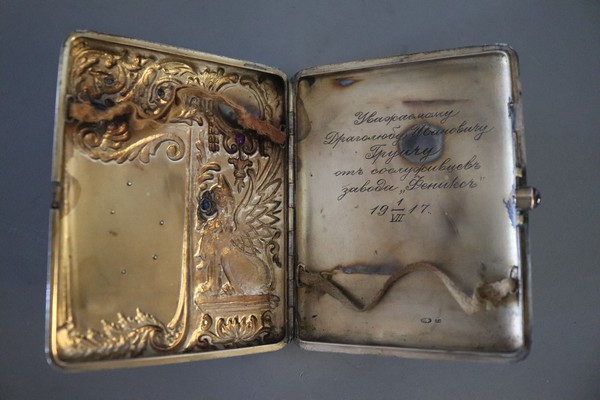 Уважаемому
Драголюбу Ивановичу
Груичу
отъ сослуживцевъ
завода „Фениксъ"
19 1/VII 17.